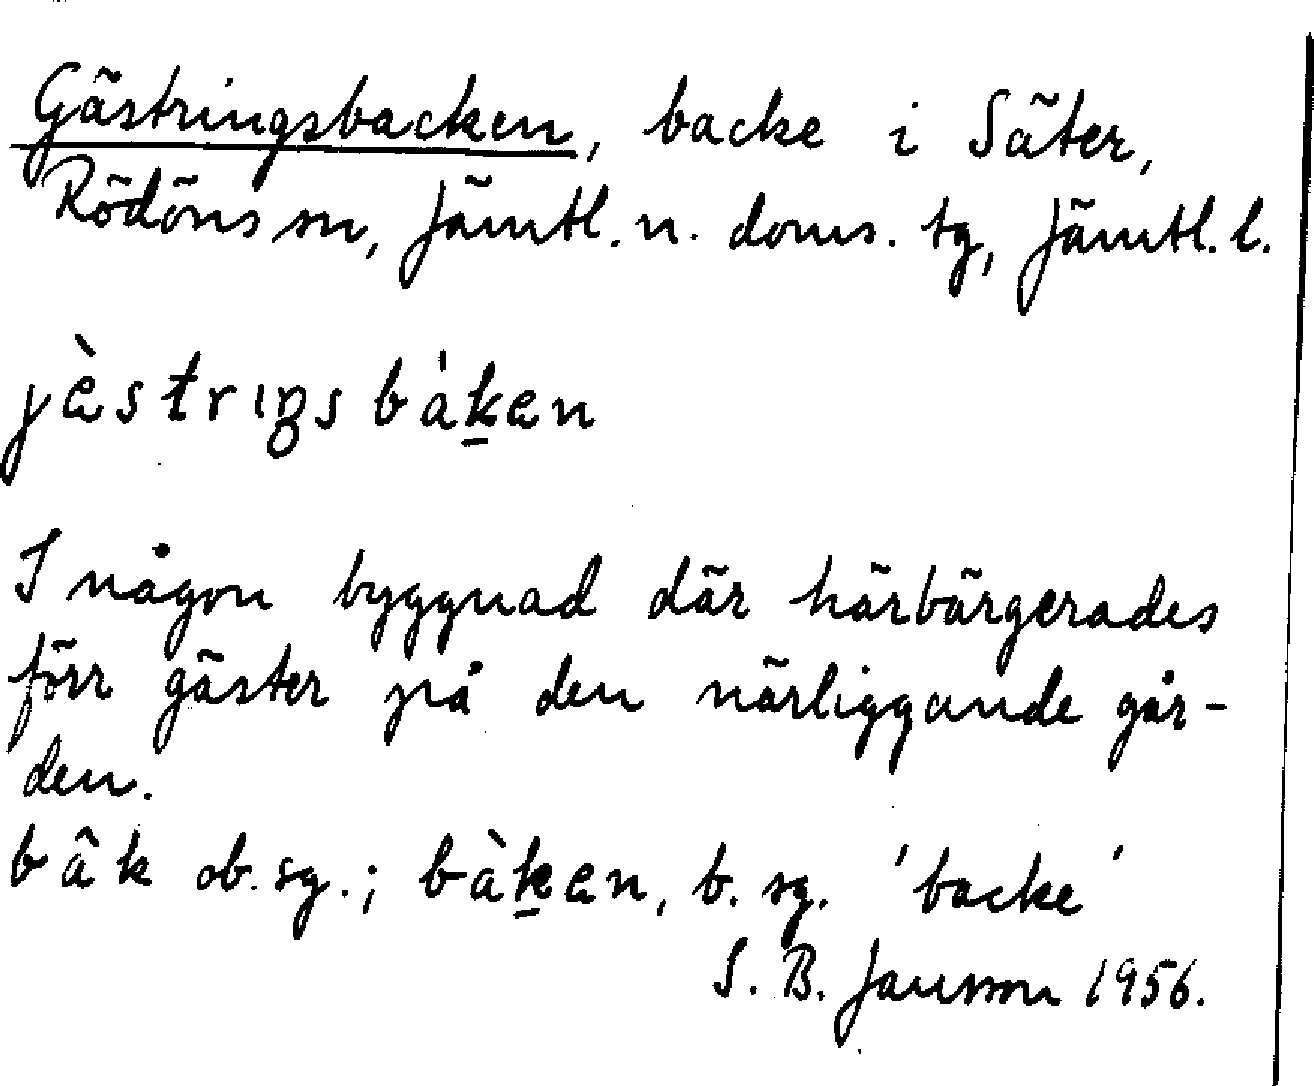 Gästringsbacken, backe i Säter,
Rödöns sn, Jämtl. n. doms. tg, Jämtl. l.
jèstrıŋs báken
I någon byggnad där härbärgerades
förr gäster på den närliggande går-
den.
bâk ob. sg.; bàken, b. sg. 'backe'
S. B. Jansson 1956.